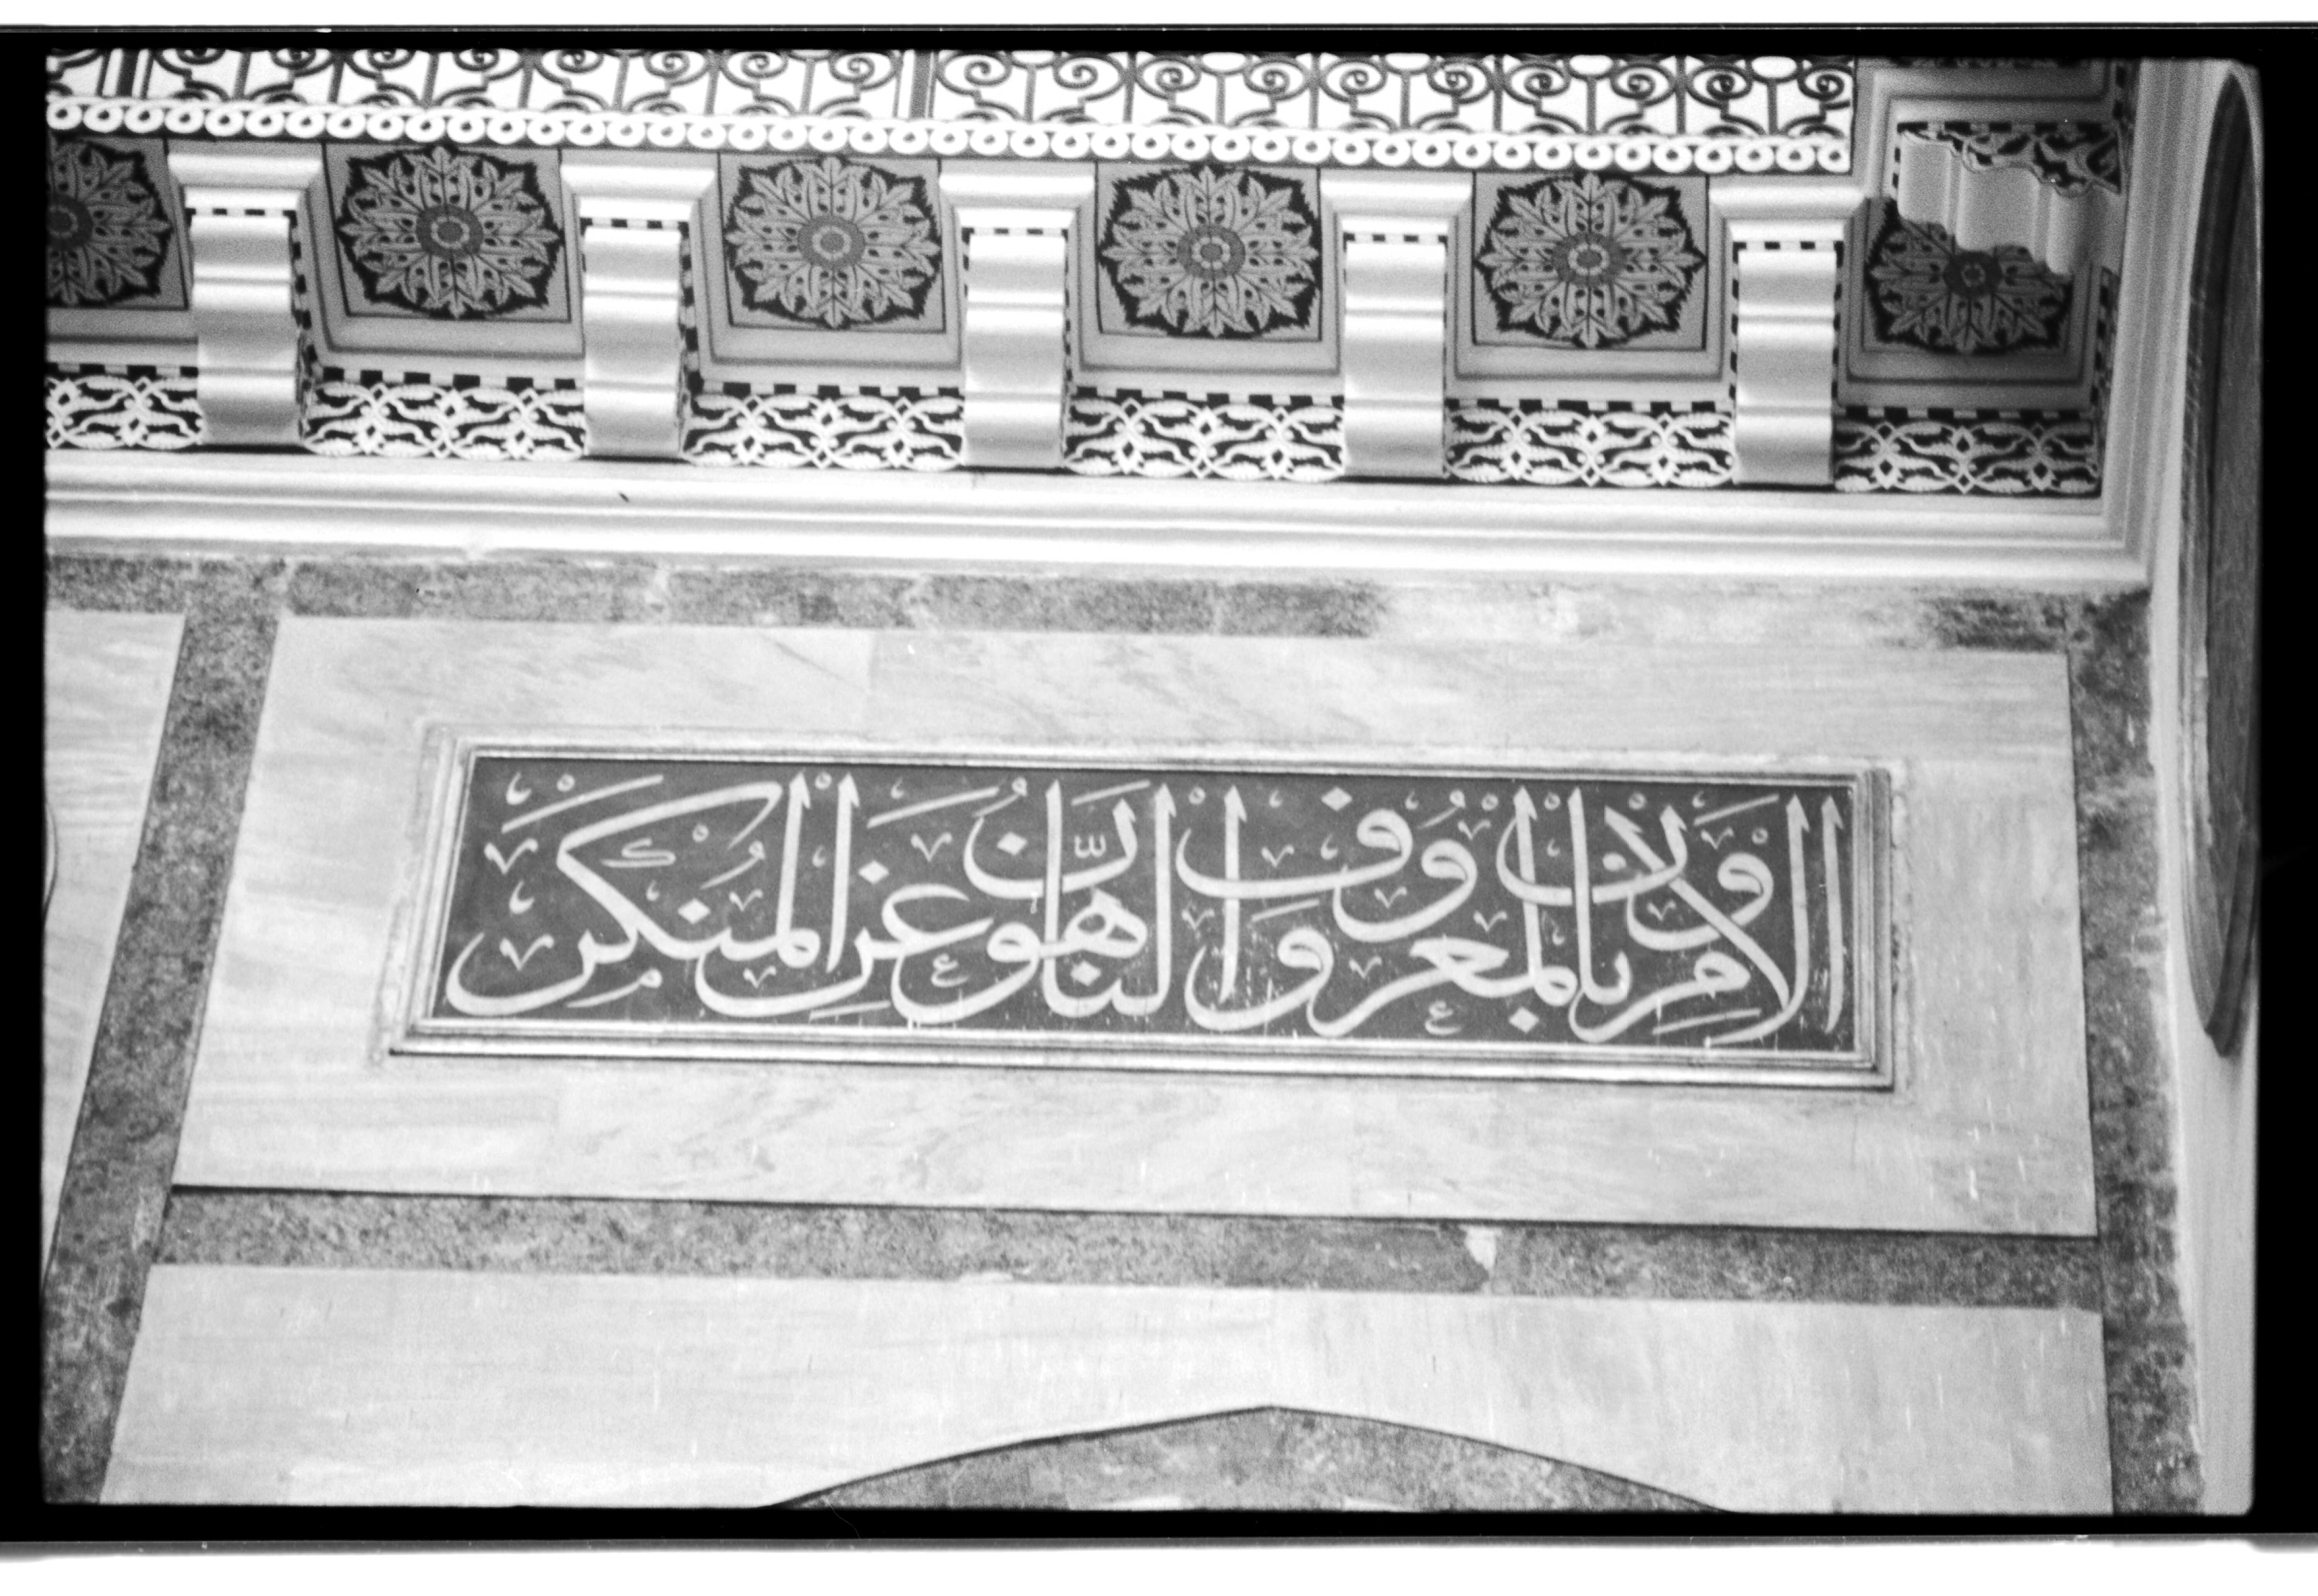 الْاٰمِرُونَ بِالْمَعْرُوفِ وَالنَّاهُونَ عَنِ الْمُنْكَرِ